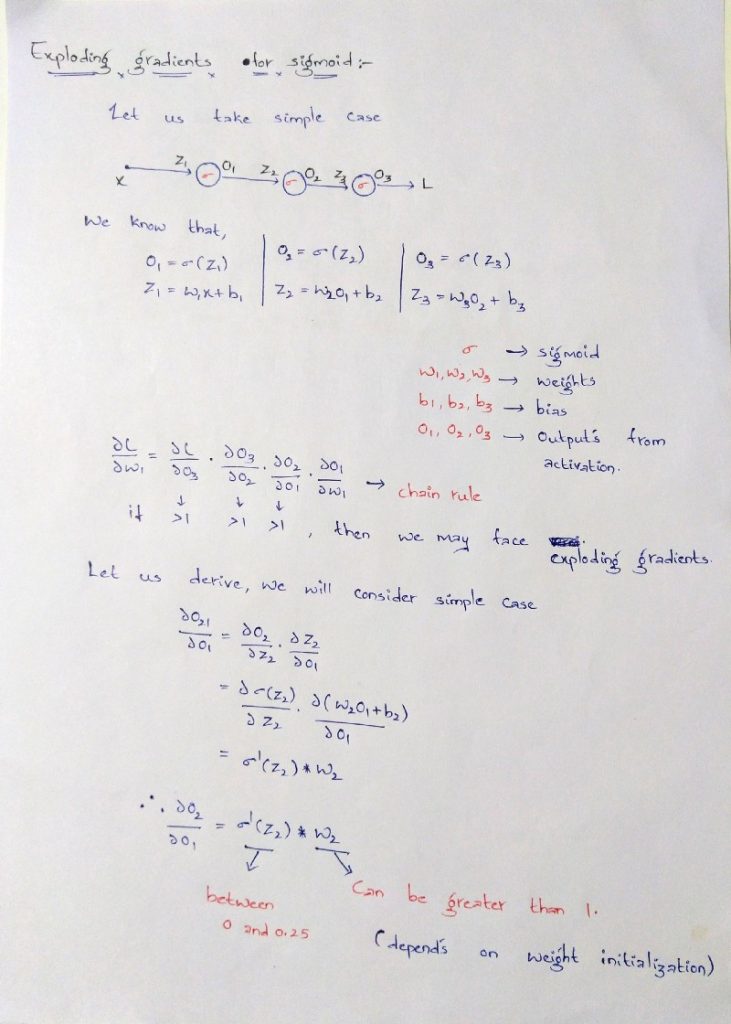 Exploding gradients for sigmoid :-
Let us take simple case
x Z₁ σ O₁ Z₂ σ O₂ Z₃ σ O₃ L
We know that,
O₁ = σ(Z₁) | O₂ = σ(Z₂) | O₃ = σ(Z₃)
Z₁ = W₁x+b₁ | Z₂ = W₂O₁+b₂ | Z₃ = W₃O₂ + b₃
σ → sigmoid
W₁, W₂, W₃ → weights
b₁, b₂, b₃ → bias
O₁, O₂, O₃ → Outputs from
activation.
∂L/∂W₁ = ∂L/∂O₃ · ∂O₃/∂O₂ · ∂O₂/∂O₁ · ∂O₁/∂W₁ → chain rule
↓ ↓ ↓
if >1 >1 >1 , then we may face
exploding gradients.
Let us derive, we will consider simple case
∂O₂₁/∂O₁ = ∂O₂/∂Z₂ · ∂Z₂/∂O₁
= ∂σ(Z₂)/∂Z₂ · ∂(W₂O₁+b₂)/∂O₁
= σ'(Z₂) * W₂
∴ ∂O₂/∂O₁ = σ'(Z₂) * W₂
between
0 and 0.25
Can be greater than 1.
(depends on weight initialization)